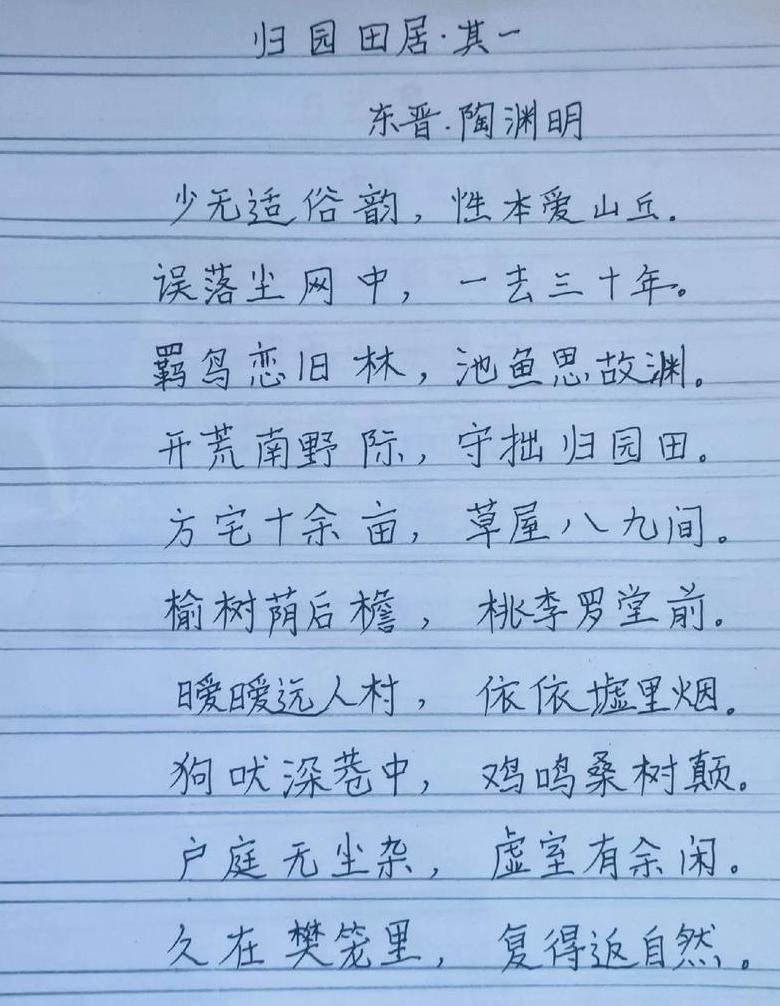 归园田居·其一
东晋·陶渊明
少无适俗韵，性本爱山丘。
误落尘网中，一去三十年。
羁鸟恋旧林，池鱼思故渊。
开荒南野际，守拙归园田。
方宅十余亩，草屋八九间。
榆树荫后檐，桃李罗堂前。
暧暧远人村，依依墟里烟。
狗吠深巷中，鸡鸣桑树颠。
户庭无尘杂，虚室有余闲。
久在樊笼里，复得返自然。